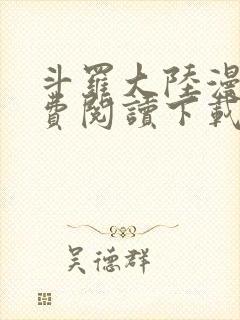 斗羅大陸漫
費閱讀下載
吳德群